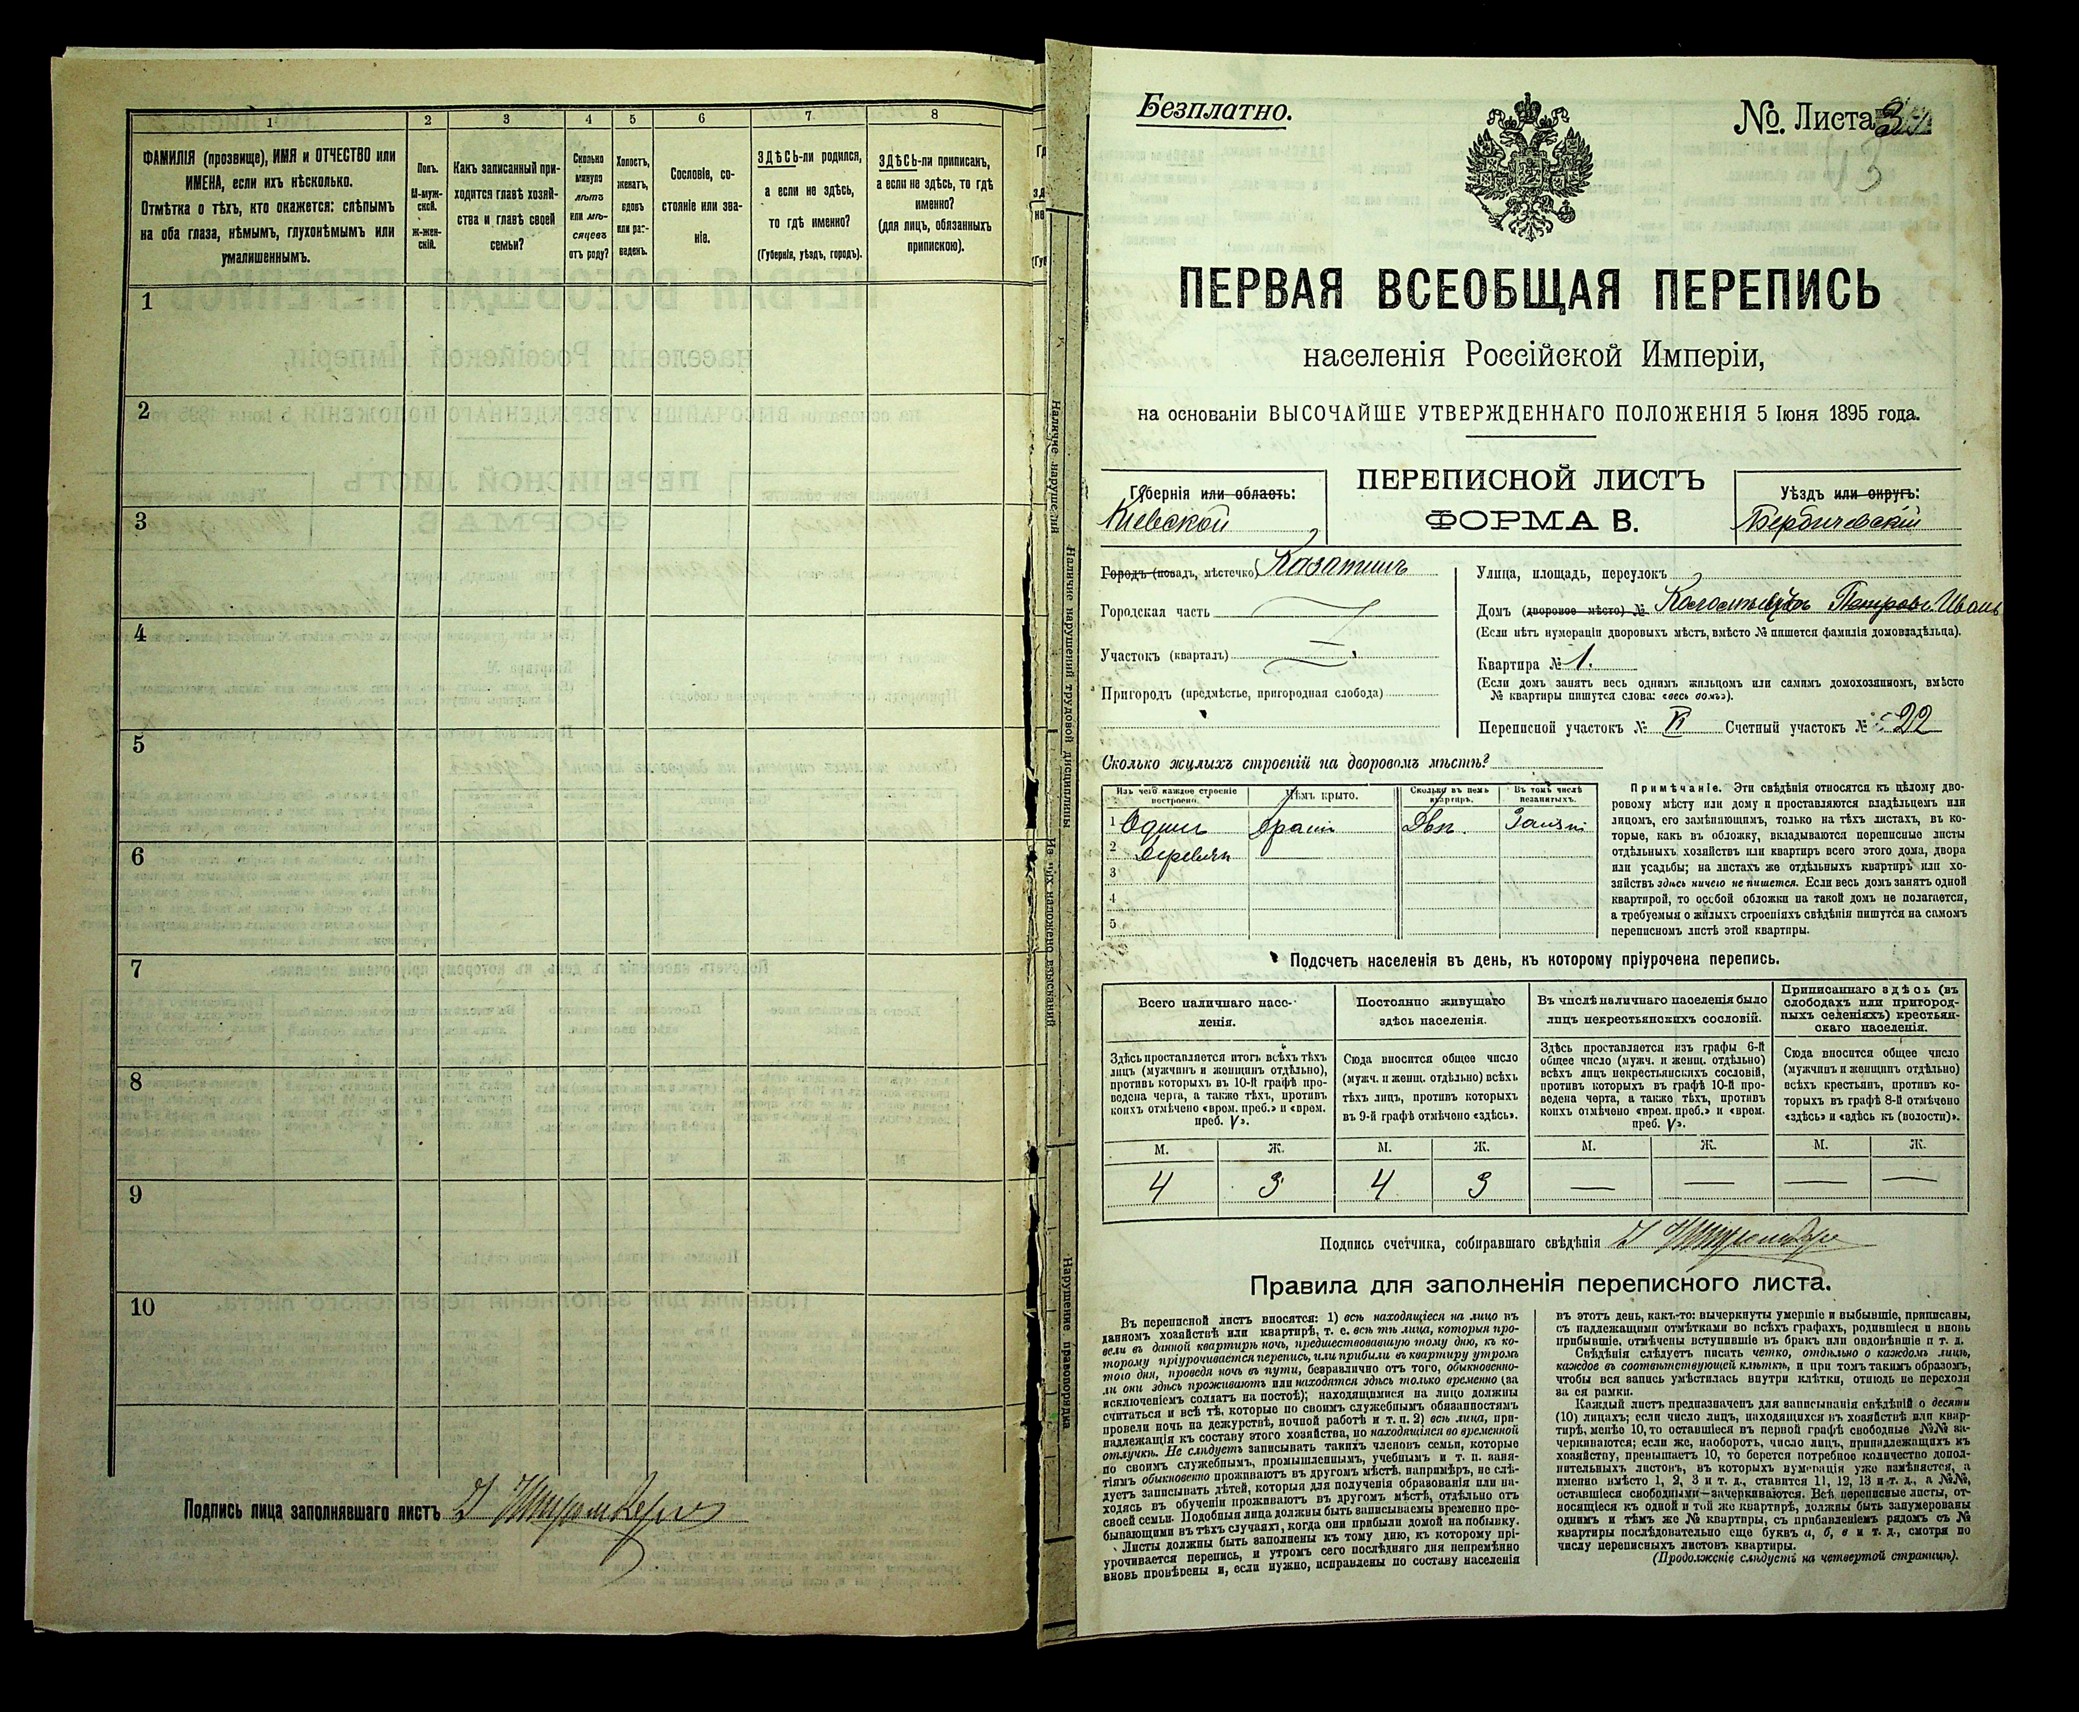 1
2
3
4
5
6
7
8
ФАМИЛІЯ (прозвище), ИМЯ и ОТЧЕСТВО или
ИМЕНА, если ихъ нѣсколько.
Отмѣтка о тѣхъ, кто окажется: слѣпымъ
на оба глаза, нѣмымъ, глухонѣмымъ или
умалишеннымъ.
Полъ.
М-муж-
ской.
Ж-жен-
скій.
Какъ записанный при-
ходится главѣ хозяй-
ства и главѣ своей
семьи?
Сколько
минуло
лѣтъ
или мѣ-
сяцевъ
отъ роду?
Холостъ,
женатъ,
вдовъ
или раз-
веденъ.
Сословіе, со-
стояніе или зва-
ніе.
ЗДѢСЬ-ли родился,
а если не здѣсь,
то гдѣ именно?
(Губернія, уѣздъ, городъ).
ЗДѢСЬ-ли приписанъ,
а если не здѣсь, то гдѣ
именно?
(для лицъ, обязанныхъ
припискою).
1
2
3
4
5
6
7
8
9
10
Подпись лица заполнявшаго листъ
Наличие нарушений
Наличие нарушений трудовой дисциплины
Из них наложено взысканий
Нарушение правопорядка
Безплатно.
№. Листа
ПЕРВАЯ ВСЕОБЩАЯ ПЕРЕПИСЬ
населенія Россійской Имперіи,
на основаніи ВЫСОЧАЙШЕ УТВЕРЖДЕННАГО ПОЛОЖЕНІЯ 5 Іюня 1895 года.
Губернія или область:
Кіевской
ПЕРЕПИСНОЙ ЛИСТЪ
ФОРМА В.
Уѣздъ или округъ:
Бердичевскій
Городъ (посадъ, мѣстечко) Казатинъ
Городская часть
Участокъ (кварталъ)
Пригородъ (предмѣстье, пригородная слобода)
Улица, площадь, переулокъ
Домъ (дворовое мѣсто) №
(Если нѣтъ нумераціи дворовыхъ мѣстъ, вмѣсто № пишется фамилія домовладѣльца).
Квартира № 1.
(Если домъ занятъ весь однимъ жильцомъ или самимъ домохозяиномъ, вмѣсто
№ квартиры пишутся слова: «весь домъ»).
Переписной участокъ № VI Счетный участокъ № 22
Сколько жилыхъ строеній на дворовомъ мѣстѣ?
Изъ чего каждое строеніе
построено.
Чѣмъ крыто.
Сколько въ немъ
квартиръ.
Въ томъ числѣ
незанятыхъ.
1 Одинъ Двѣ.
2
3
4
5
Примѣчаніе. Эти свѣдѣнія относятся къ цѣлому дво-
ровому мѣсту или дому и проставляются владѣльцемъ или
лицомъ, его замѣняющимъ, только на тѣхъ листахъ, въ ко-
торые, какъ въ обложку, вкладываются переписные листы
отдѣльныхъ хозяйствъ или квартиръ всего этого дома, двора
или усадьбы; на листахъ же отдѣльныхъ квартиръ или хо-
зяйствъ здѣсь ничего не пишется. Если весь домъ занятъ одной
квартирой, то особой обложки на такой домъ не полагается,
а требуемыя о жилыхъ строеніяхъ свѣдѣнія пишутся на самомъ
переписномъ листѣ этой квартиры.
Подсчетъ населенія въ день, къ которому пріурочена перепись.
Всего наличнаго насе-
ленія.
Постоянно живущаго
здѣсь населенія.
Въ числѣ наличнаго населенія было
лицъ некрестьянскихъ сословій.
Приписаннаго здѣсь (въ
слободахъ или пригород-
ныхъ селеніяхъ) крестьян-
скаго населенія.
Здѣсь проставляется итогъ всѣхъ тѣхъ
лицъ (мужчинъ и женщинъ отдѣльно),
противъ которыхъ въ 10-й графѣ про-
ведена черта, а также тѣхъ, противъ
коихъ отмѣчено «врем. преб.» и «врем.
преб. V».
Сюда вносится общее число
(мужч. и женщ. отдѣльно) всѣхъ
тѣхъ лицъ, противъ которыхъ
въ 9-й графѣ отмѣчено «здѣсь».
Здѣсь проставляется изъ графы 6-й
общее число (мужч. и женщ. отдѣльно)
всѣхъ лицъ некрестьянскихъ сословій,
противъ которыхъ въ графѣ 10-й про-
ведена черта, а также тѣхъ, противъ
коихъ отмѣчено «врем. преб.» и «врем.
преб. V».
Сюда вносится общее число
(мужчинъ и женщинъ отдѣльно)
всѣхъ крестьянъ, противъ ко-
торыхъ въ графѣ 8-й отмѣчено
«здѣсь» и «здѣсь къ (волости)».
М. Ж. М. Ж. М. Ж. М. Ж.
4 3 4 3 — — — —
Подпись счетчика, собиравшаго свѣдѣнія
Правила для заполненія переписного листа.
Въ переписной листъ вносятся: 1) всѣ находящіеся на лицо въ
данномъ хозяйствѣ или квартирѣ, т. е. всѣ тѣ лица, которыя про-
вели въ данной квартирѣ ночь, предшествовавшую тому дню, къ ко-
торому пріурочивается перепись, или прибыли въ квартиру утромъ
того дня, проведя ночь въ пути, безразлично отъ того, обыкновенно-
ли они здѣсь проживаютъ или находятся здѣсь только временно (за
исключеніемъ солдатъ на постоѣ); находящимися на лицо должны
считаться и всѣ тѣ, которые по своимъ служебнымъ обязанностямъ
провели ночь на дежурствѣ, ночной работѣ и т. п. 2) всѣ лица, при-
надлежащія къ составу этого хозяйства, но находящіяся во временной
отлучкѣ. Не слѣдуетъ записывать такихъ членовъ семьи, которые
по своимъ служебнымъ, промышленнымъ, учебнымъ и т. п. заня-
тіямъ обыкновенно проживаютъ въ другомъ мѣстѣ, напримѣръ, не слѣ-
дуетъ записывать дѣтей, которыя для полученія образованія или на-
ходясь въ обученіи проживаютъ въ другомъ мѣстѣ, отдѣльно отъ
своей семьи. Подобныя лица должны быть записываемы временно пре-
бывающими въ тѣхъ случаяхъ, когда они прибыли домой на побывку.
Листы должны быть заполнены къ тому дню, къ которому прі-
урочивается перепись, и утромъ сего послѣдняго дня непремѣнно
вновь провѣрены и, если нужно, исправлены по составу населенія
въ этотъ день, какъ-то: вычеркнуты умершіе и выбывшіе, приписаны,
съ надлежащими отмѣтками во всѣхъ графахъ, родившіеся и вновь
прибывшіе, отмѣчены вступившіе въ бракъ или овдовѣвшіе и т. д.
Свѣдѣнія слѣдуетъ писать четко, отдѣльно о каждомъ лицѣ,
каждое въ соотвѣтствующей клѣткѣ, и при томъ такимъ образомъ,
чтобы вся запись умѣстилась внутри клѣтки, отнюдь не переходя
за ея рамки.
Каждый листъ предназначенъ для записыванія свѣдѣній о десяти
(10) лицахъ; если число лицъ, находящихся въ хозяйствѣ или квар-
тирѣ, менѣе 10, то оставшіеся въ первой графѣ свободные №№ за-
черкиваются; если же, наоборотъ, число лицъ, принадлежащихъ къ
хозяйству, превышаетъ 10, то берется потребное количество допол-
нительныхъ листовъ, въ которыхъ нумерація уже измѣняется, а
именно вмѣсто 1, 2, 3 и т. д., ставится 11, 12, 13 и т. д., а №№,
оставшіеся свободными—зачеркиваются. Всѣ переписные листы, от-
носящіеся къ одной и той же квартирѣ, должны быть занумерованы
однимъ и тѣмъ же № квартиры, съ прибавленіемъ рядомъ съ №
квартиры послѣдовательно еще буквъ а, б, в и т. д., смотря по
числу переписныхъ листовъ квартиры.
(Продолженіе слѣдуетъ на четвертой страницѣ).